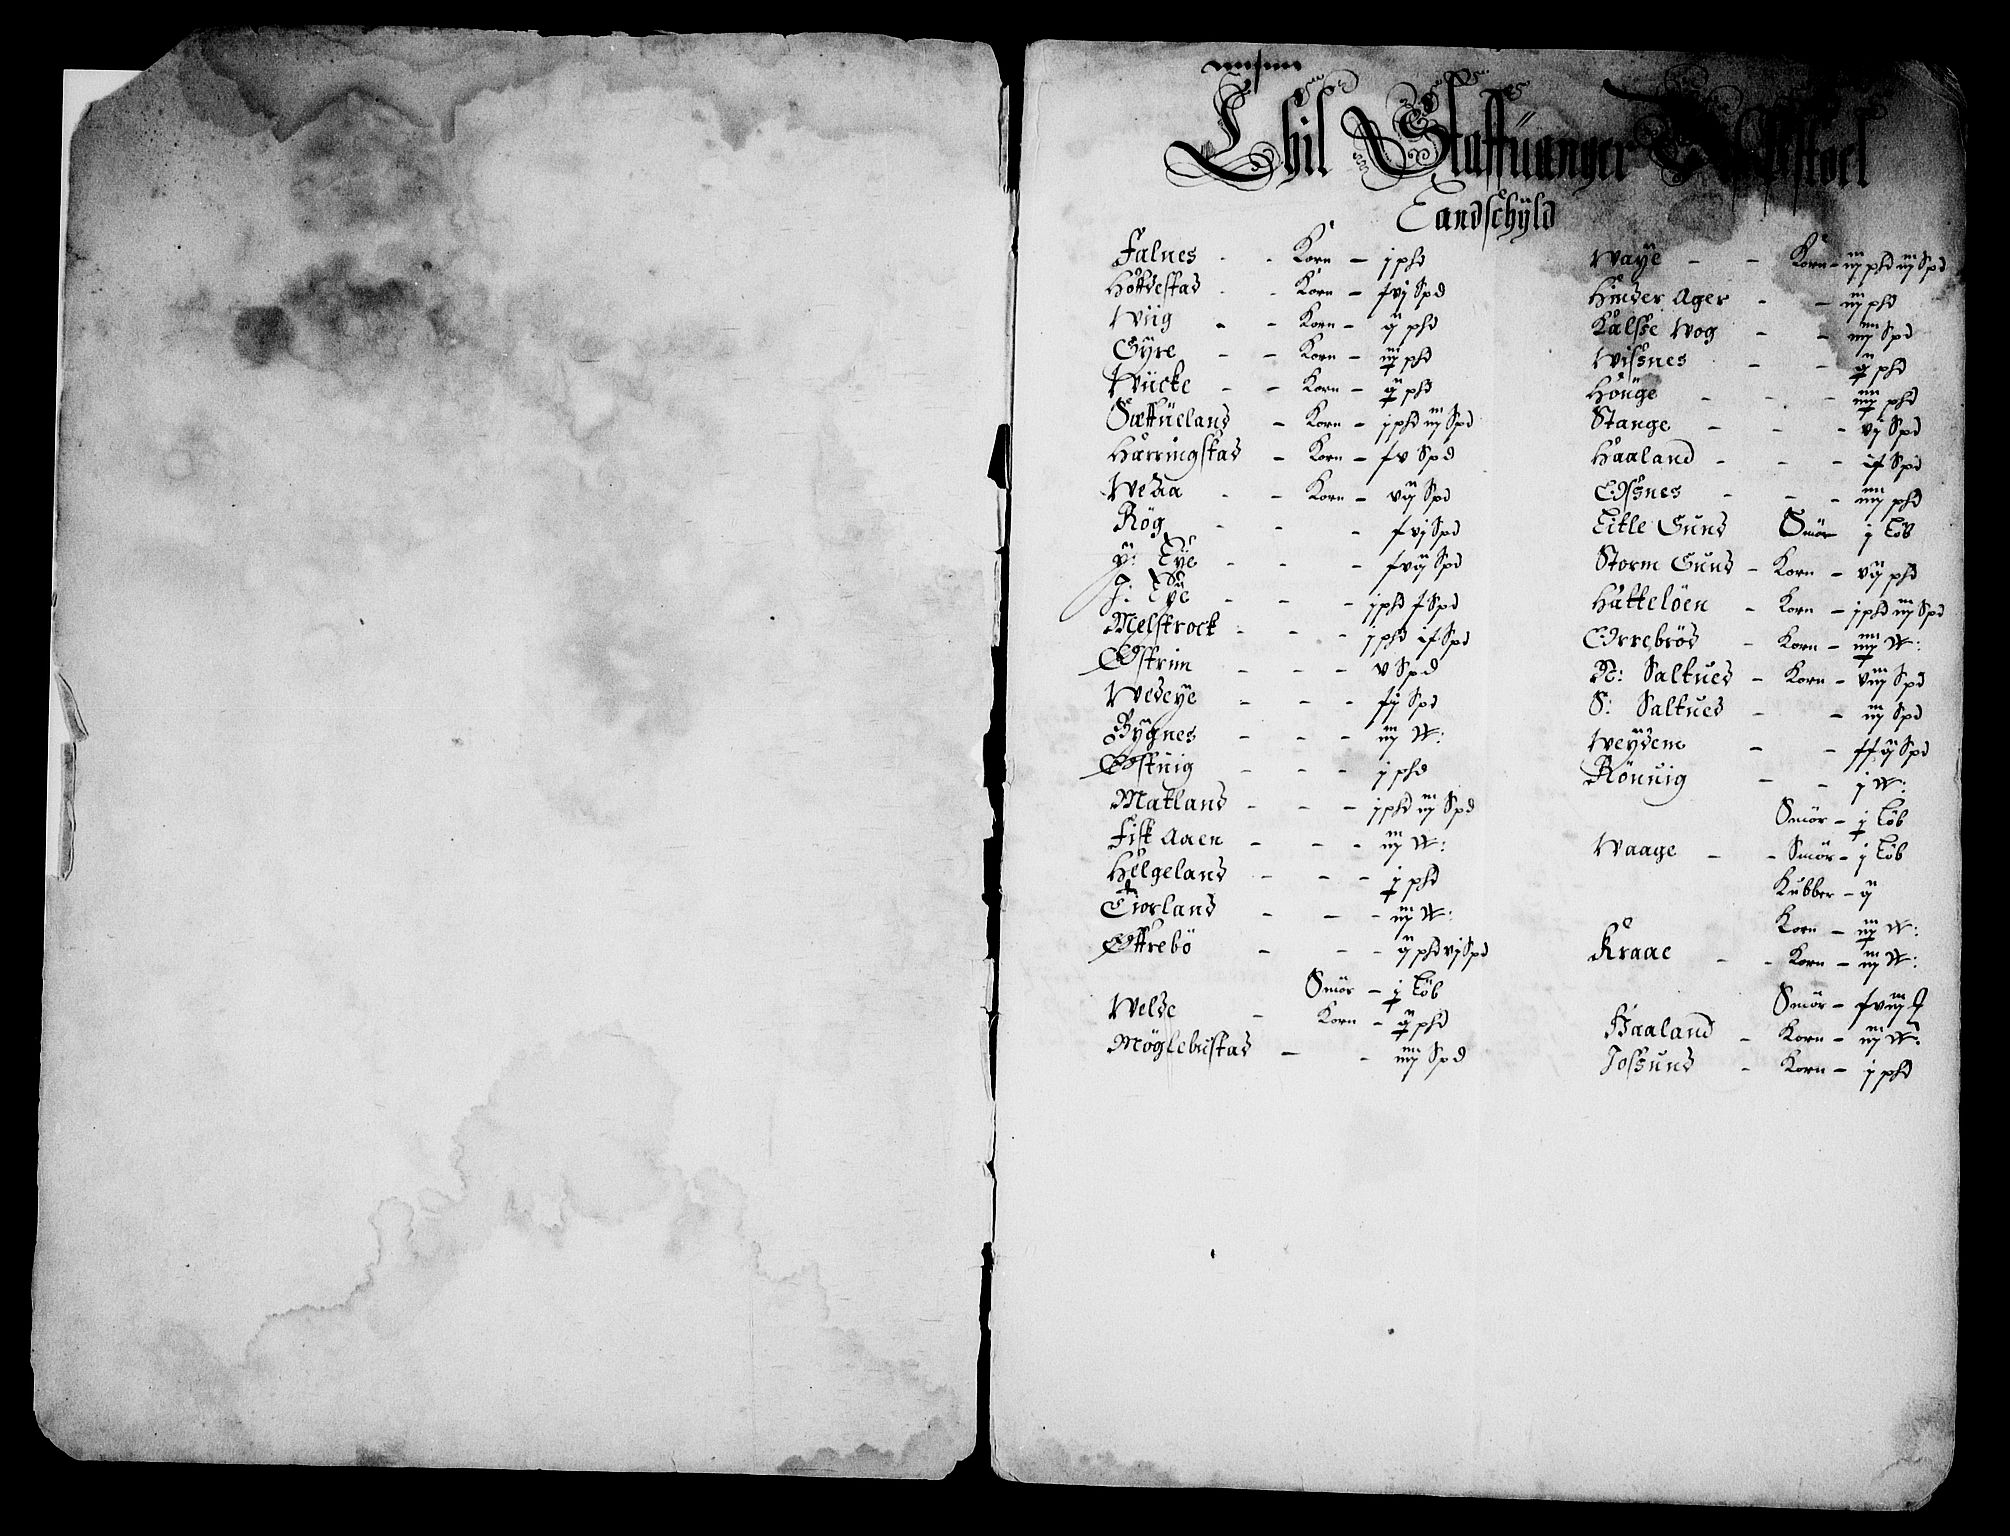 Thil Staffuanger
Landschÿld
Falnes - - Korn - j phd
Hottestad - - Korn - fvj Spd
Wiig - - Korn - ij phd
Gÿre - - Korn - iij phd
Wücke - - Korn - ij phd
Sættüeland - Korn - j phd iij Spd
Harringstad - Korn - fv Spd
Wedaa - - Korn - vij Spd
Røg - - - fvj Spd
ÿ: Eÿe - - - fvij Spd
J: Eÿe - - - j phd f Spd
Melstrock - - - j phd if Spd
Østrim - - - v Spd
Wedeÿe - - - fij Spd
Bÿgnes - - - iij W:
Østuig - - - j phd
Matland - - - j phd iij Spd
Fisk Aaen - - - iij W:
Helgeland - - - j phd
Eiorland - - - iiij W:
Øttrebö - - - ij phd vj Spd
Smör - j Löb
Welde - Korn - ij phd
Möglebustad - - iiij Spd
Waÿe - - Korn - iij phd iij Spd
Hinder Ager - - iij phd
Kalsse Wog - - iiij Spd
Wissnes - - ij phd
Höüge - - - iiij phd
Stange - - - vj Spd
Haaland - - - if Spd
Ossnes - - - iiij phd
Litle Sünd Smör j Löb
Storm Sünd - Korn - vij phd
Hatteløen - Korn - j phd iij Spd
Orrebröd - Korn - iiij W:
N: Saltued - Korn - viij Spd
S: Saltued - - iij Spd
Weÿdem - - ffij Spd
Rönuig - - j W:
Smör - j Löb
Waage - - Smör - j Löb
Kubber - ij
Korn - iij W:
Kraae - - Korn - iij W:
Smör - fviij
Haaland - Korn - iij W:
Jossund - Korn - j phd